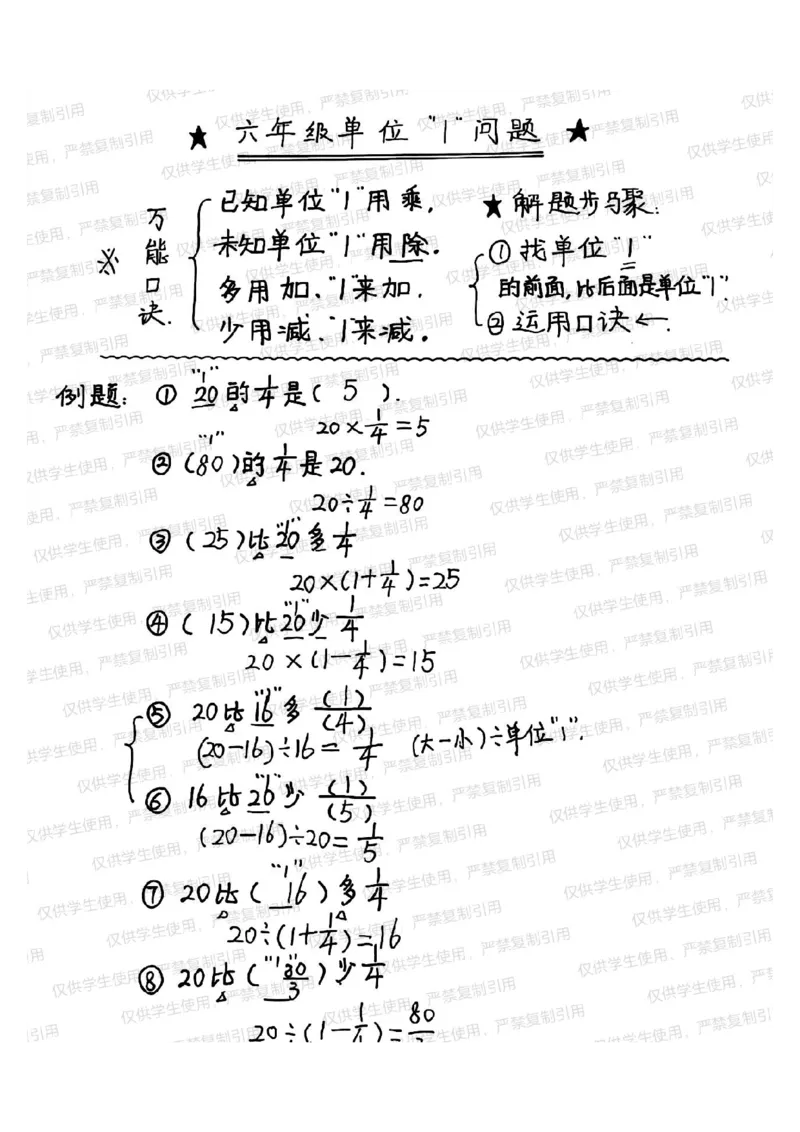 ★ 六年级单位"1"问题 ★
※ 万能口诀.
已知单位"1"用乘,
未知单位"1"用除.
多用加、"1"来加.
少用减、"1"来减.
★ 解题步骤:
① 找单位"1"
的前面,比后面是单位"1".
② 运用口诀←.
例题: ① "1" 20的1/4是( 5 ).
20×1/4=5
② "1" (80)的1/4是20.
20÷1/4=80
③ (25)比"1"20多1/4
20×(1+1/4)=25
④ ( 15)比"1"20少1/4
20×(1-1/4)=15
⑤ 20比"1"16多(1)/(4)
(20-16)÷16=1/4 (大-小)÷单位"1".
⑥ 16比"1"20少(1)/(5)
(20-16)÷20=1/5
⑦ 20比("1"16)多1/4
20÷(1+1/4)=16
⑧ 20比("1"80/3)少1/4
20÷(1-1/4)=80
仅供学生使用，严禁复制引用